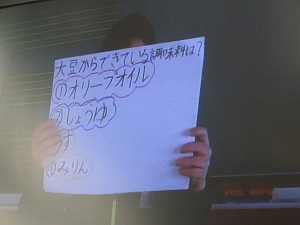 大豆からできている調味料は?
①オリーブオイル
②しょうゆ
す
④みりん